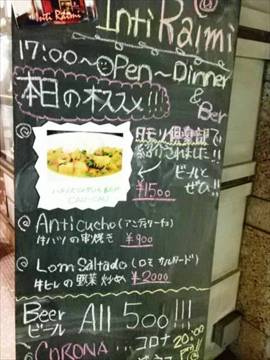 Inti Raimi
Inti Raimi
17:00~OPen~Dinner
& Ber
本日のオススメ!!!
タモリ倶楽部で
紹介されました!!
ビールと
ぜひ!!
¥1500
CAU-CAU
@Anticucho(アンティクーチョ)
牛ハツの串焼き ¥900
@Lomo Saltado(ロモ サルタード)
牛ヒレの野菜炒め ¥2000
Beer
ビール All 500!!!
CORONA... コロナ
20:00